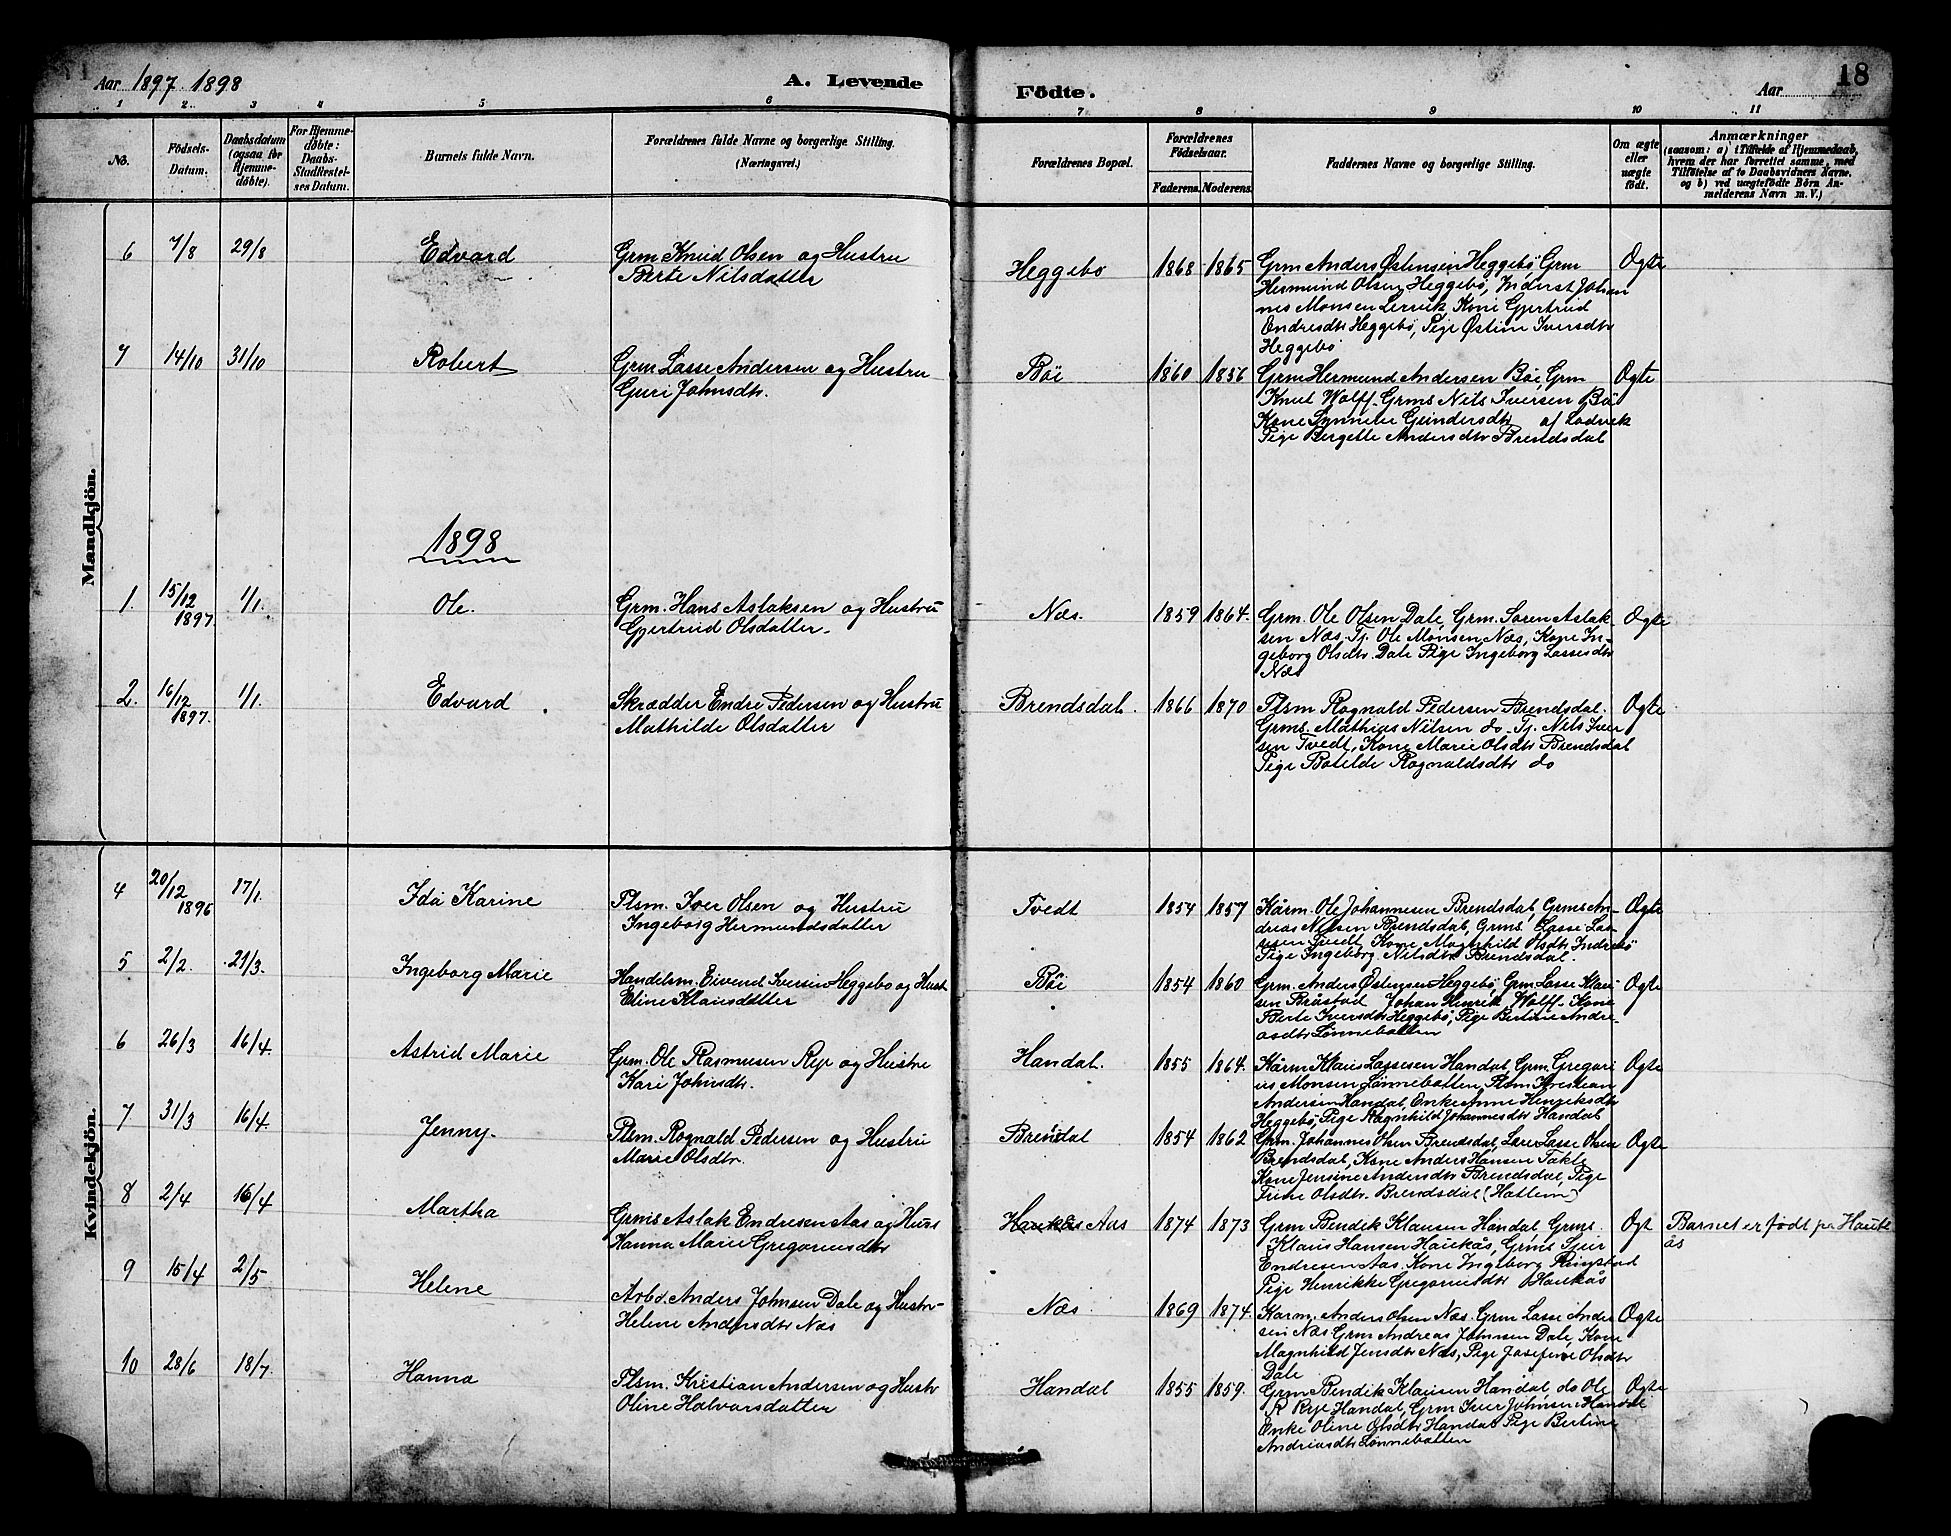 Aar 1897 1898
A. Levende
Födte.
Aar
18
1 2 3 4 5 6 7 8 9 10 11
No.
Födsels-
Datum.
Daabsdatum
(ogsaa for
Hjemme-
döbte).
For Hjemme-
döbte:
Daabs-
Stadfestel-
ses Datum.
Barnets fulde Navn.
Forældrenes fulde Navne og borgerlige Stilling.
(Næringsvei.)
Forældrenes Bopæl.
Forældrenes
Födselsaar.
Faderens. Moderens.
Faddernes Navne og borgerlige Stilling.
Om ægte
eller
uægte
födt.
Anmærkninger
(saasom: a) i Tilfælde af Hjemmedaab,
hvem der har forrettet samme, med
Tilföielse af to Daabsvidners Navne.
og b) ved uægtefödte Börn An-
melderens Navn m. V.)
Mandkjön.
6 7/8 29/8 Edvard
Grm Knud Olsen og Hustru
Berte Nilsdatter
Heggebø 1868 1865
Grm Anders Østensen Heggebö, Grm
Hermund Olsen Heggebö, Inderst Johan
nes Monsen Lervik Kone Gjertrud
Endresdtr Heggebö, Pige Østine Iversdtr
Heggebö
Ægte
7 14/10 31/10 Robert
Grm Lasse Andersen og Hustru
Guri Johnsdtr.
Böe 1860 1856
Grm Hermund Andersen Böe, Grm
Knut Wolff. Grms Nils Iversen Bö
Kone Synneve Gundersdtr af Ladvik
Pige Bergette Andersdtr Brendsdal
Ægte
1898
1. 15/12 1/1. Ole.
1897
Grm. Hans Aslaksen og Hustru
Gjertrud Olsdatter.
Næs. 1859 1864.
Grm. Ole Olsen Dale, Grm. Søren Aslak-
sen Næs. Tj. Ole Monsen Næs, Kone In-
geborg Olsdtr. Dale Pige Ingeborg Lassesdtr
Næs
Ægte
2. 16/12 1/1. Edvard
1897.
Skrædder Endre Pedersen og Hustru
Mathilde Olsdatter
Brendsdal. 1866 1870
Plsm Rognald Pedersen Brendsdal.
Grms. Mathias Nilsen do. Tj. Nils Iver
sen Tvedt, Kone Marie Olsdtr Brendsdal
Pige Botilde Rognaldsdtr do
Ægte
Kvindekjön.
4 20/12 17/1. Ida Karine
1896
Plsm. Iver Olsen og Hustru
Ingeborg Hermundsdatter
Tvedt 1854 1857
Kårm. Ole Johannesen Brendsdal, Grms An-
dreas Nilsen Brendsdal, Grms. Lasse Las-
sesen Tvedt, Kone Magnhild Olsdtr Indrebö
Pige Ingeborg Nilsdtr Brendsdal.
Ægte
5 2/2. 21/3. Ingeborg Marie
Handelsm. Eivend Iversen Heggebø og Hust
Eline Klausdatter
Böe 1854 1860
Grm. Anders Østensen Heggebö, Grm. Lasse Klau-
sen Bråstad Johan Henrik Wolff. Kone
Berte Iversdtr Heggebö, Pige Bertine Andre-
asdtr Lönnebotten
Ægte
6 26/3 16/4. Astrid Marie
Grm. Ole Rasmusen Rye og Hustru
Kari Johnsdtr.
Handal. 1855 1864.
Kårm Klaus Lassesen Handal, Grm. Gregori
us Monsen Lönnebotten, Plsm Kristian
Andersen Handal, Enke Anne Henriksdtr
Heggebö, Pige Ragnhild Johannesdtr Handal
Ægte
7 31/3 16/4. Jenny.
Plsm. Rognald Pedersen og Hustru
Marie Olsdtr.
Brendal 1854 1862
Grm. Johannes Olsen Brendsdal, Lærer Lasse Olsen
Brendsdal, Kone Anders Hansen Takle
Kone Jensine Andersdtr Brendsdal, Pige
Trine Olsdtr. Brendsdal (Hatlem)
Ægte
8 2/4 16/4 Martha
Grms Aslak Endresen Aas og Hust
Hanna Marie Gregoriusdtr
Haukås Aas 1874 1873
Grm Bendik Klausen Handal, Grms.
Klaus Hansen Haukås, Grms Sjur
Endresen Aas. Kone Ingeborg Ringstad
Pige Henrikke Gregoriusdtr Haukås
Ægt
Barnet er født på Hauk
ås
9 15/4 2/5 Helene
Arbd. Anders Johnsen Dale og Hustr-
Helene Andersdtr Næs
Næs 1869 1874.
Kårm. Anders Olsen Næs. Grm Lasse Ander
sen Næs Grm Andreas Johnsen Dale, Kone
Magnhild Jensdtr Næs, Pige Josefine Olsdtr
Dale
Ægte
10 28/6 18/7. Hanna
Plsm. Kristian Andersen og Hustr
Oline Halvarsdatter
Handal 1855 1859.
Grm Bendik Klausen Handal, do Ole
R Rye Handal, Grm Iver Johnsen Handal
Enke Oline Olsdtr Handal Pige Bertine
Andreasdtr Lönnebotten
Ægte